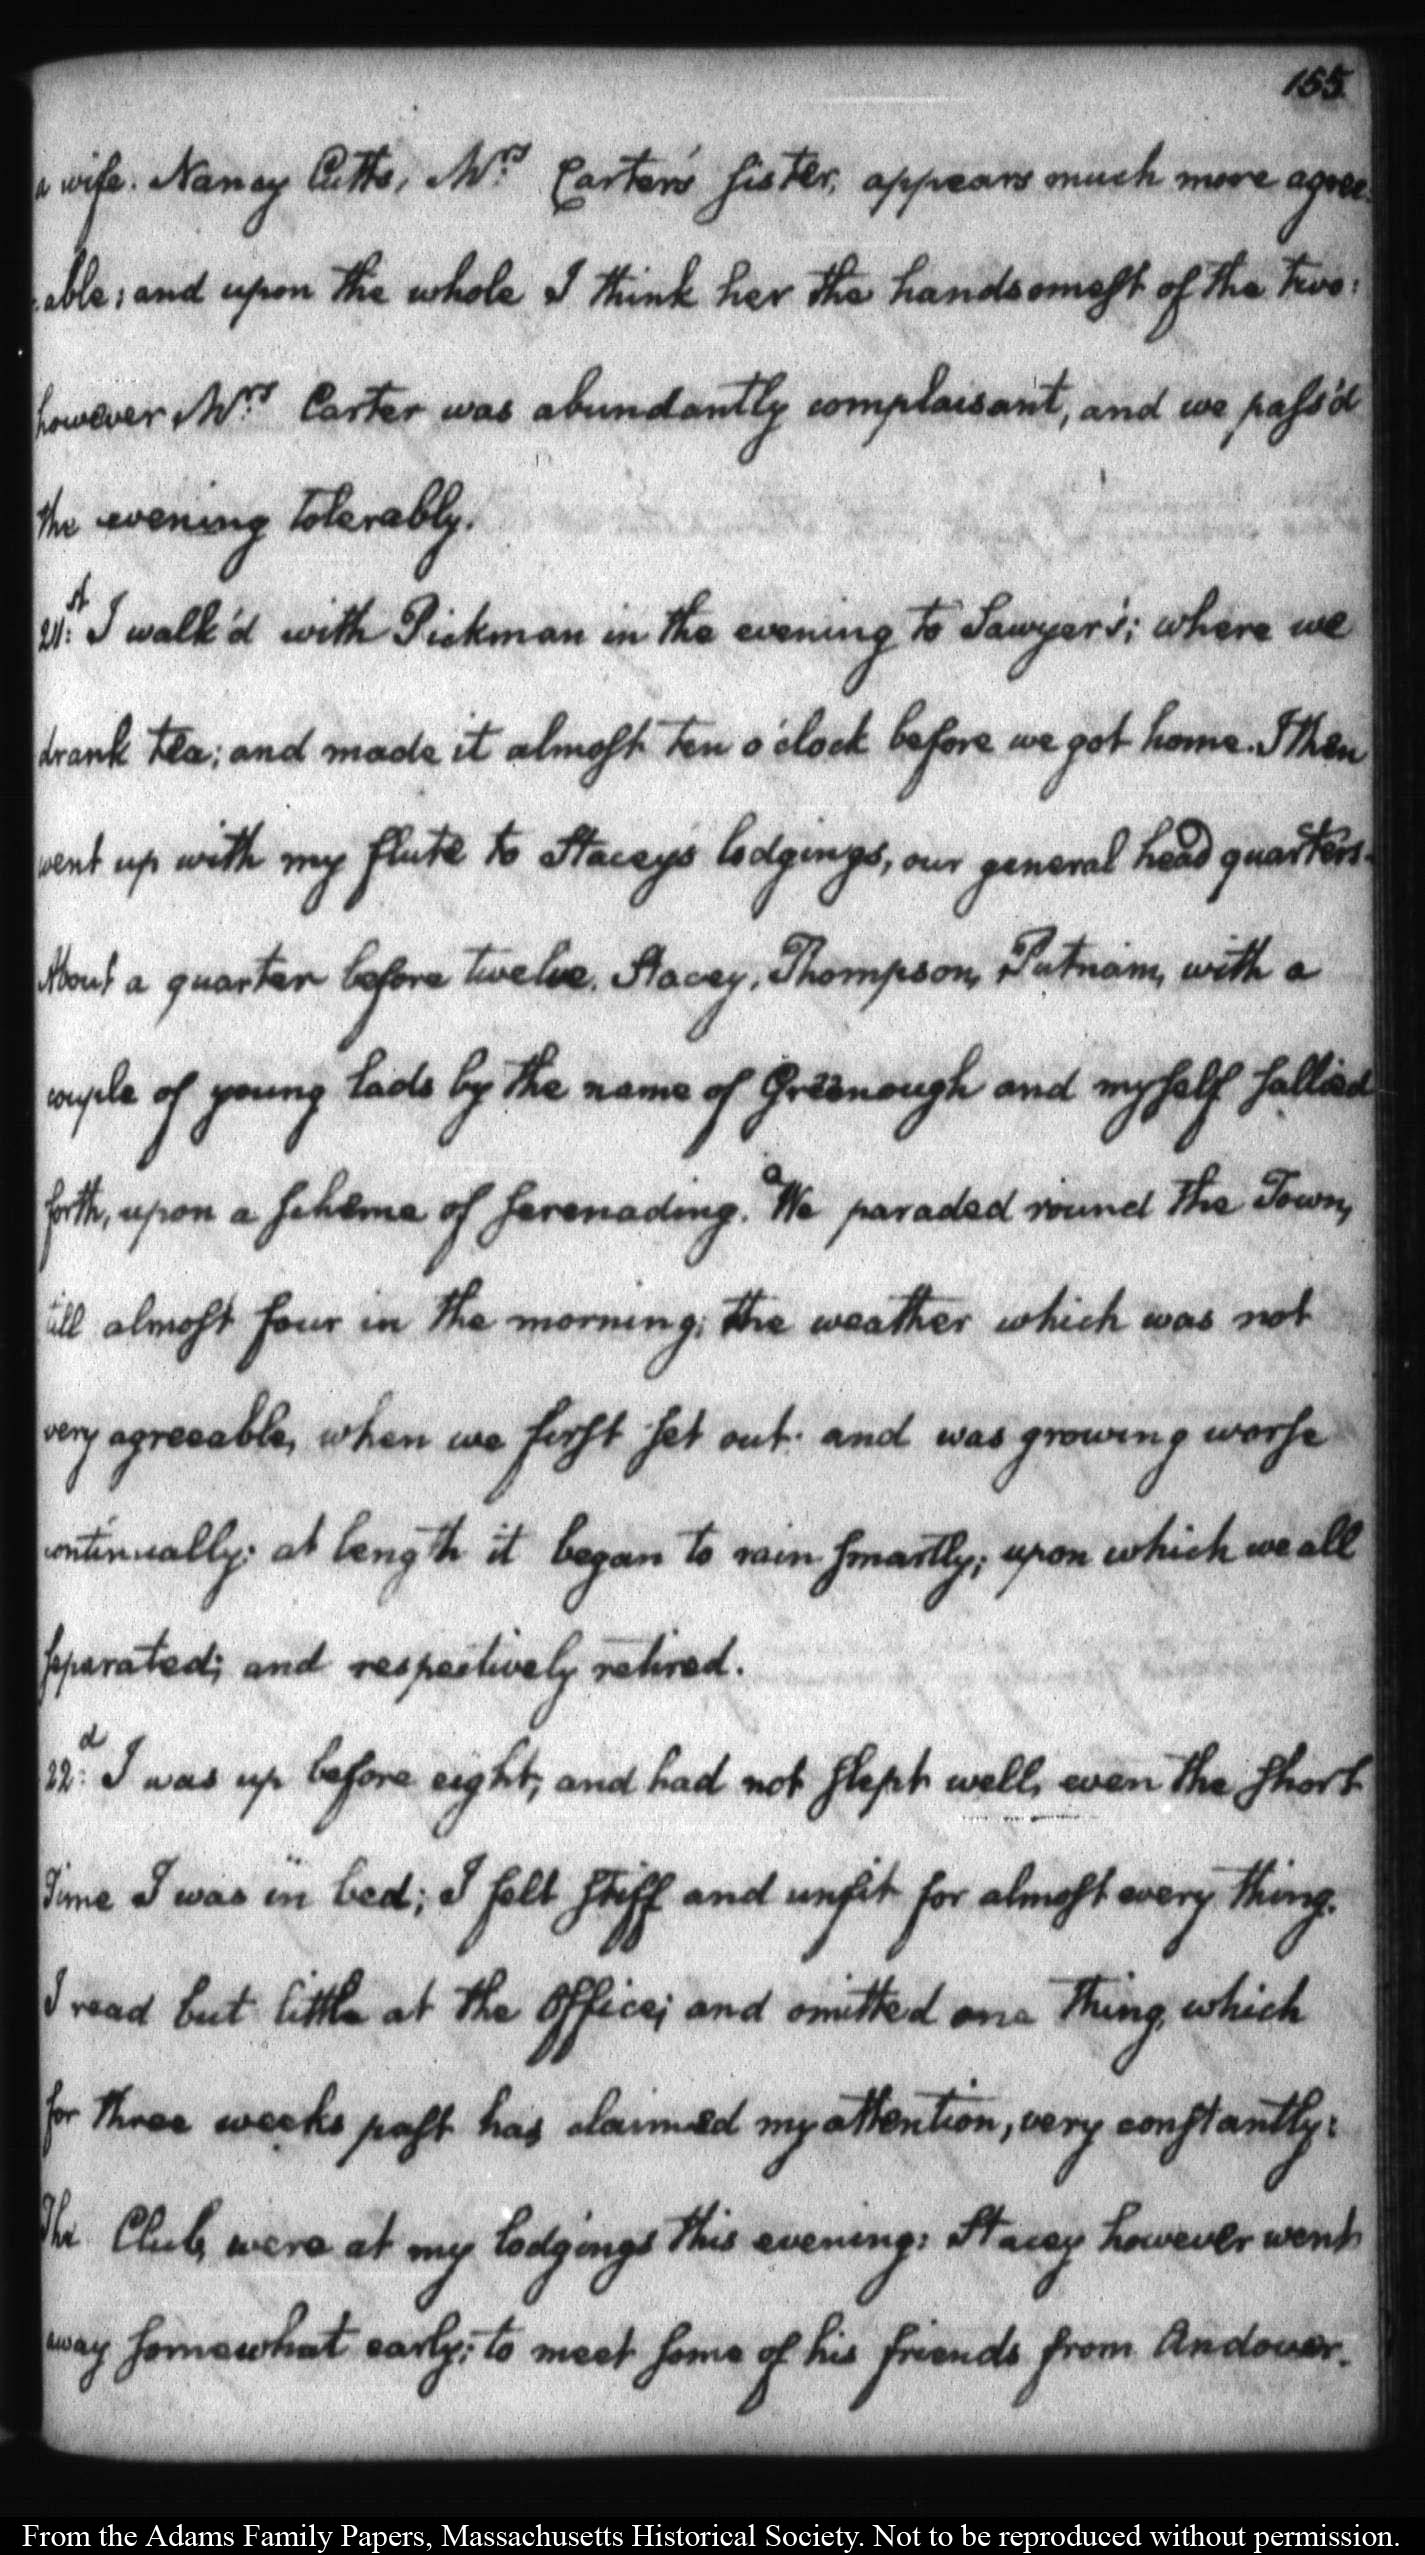 155
a wife. Nancy Cutts, Mrs. Carter's sister, appears much more agree-
-able; and upon the whole I think her the handsomest of the two:
however Mrs. Carter was abundantly complaisant, and we pass'd
the evening tolerably.
21:st I walk'd with Pickman in the evening to Sawyer's; where we
drank tea; and made it almost ten o'clock before we got home. I then
went up with my flute to Stacey's lodgings, our general head quarters.
About a quarter before twelve, Stacey, Thompson, Putnam, with a
couple of young lads by the name of Greenough and myself sallied
forth, upon a scheme of serenading. a We paraded round the Town,
till almost four in the morning; the weather which was not
very agreeable, when we first set out. and was growing worse
continually: at length it began to rain smartly; upon which we all
separated; and respectively retired.
22:d I was up before eight; and had not slept well, even the short
Time I was in bed; I felt stiff and unfit for almost every thing.
I read but little at the Office; and omitted one thing, which
for three weeks past has claimed my attention, very constantly:
The Club, were at my lodgings this evening: Stacey however went
away somewhat early; to meet some of his friends from Andover.
From the Adams Family Papers, Massachusetts Historical Society. Not to be reproduced without permission.